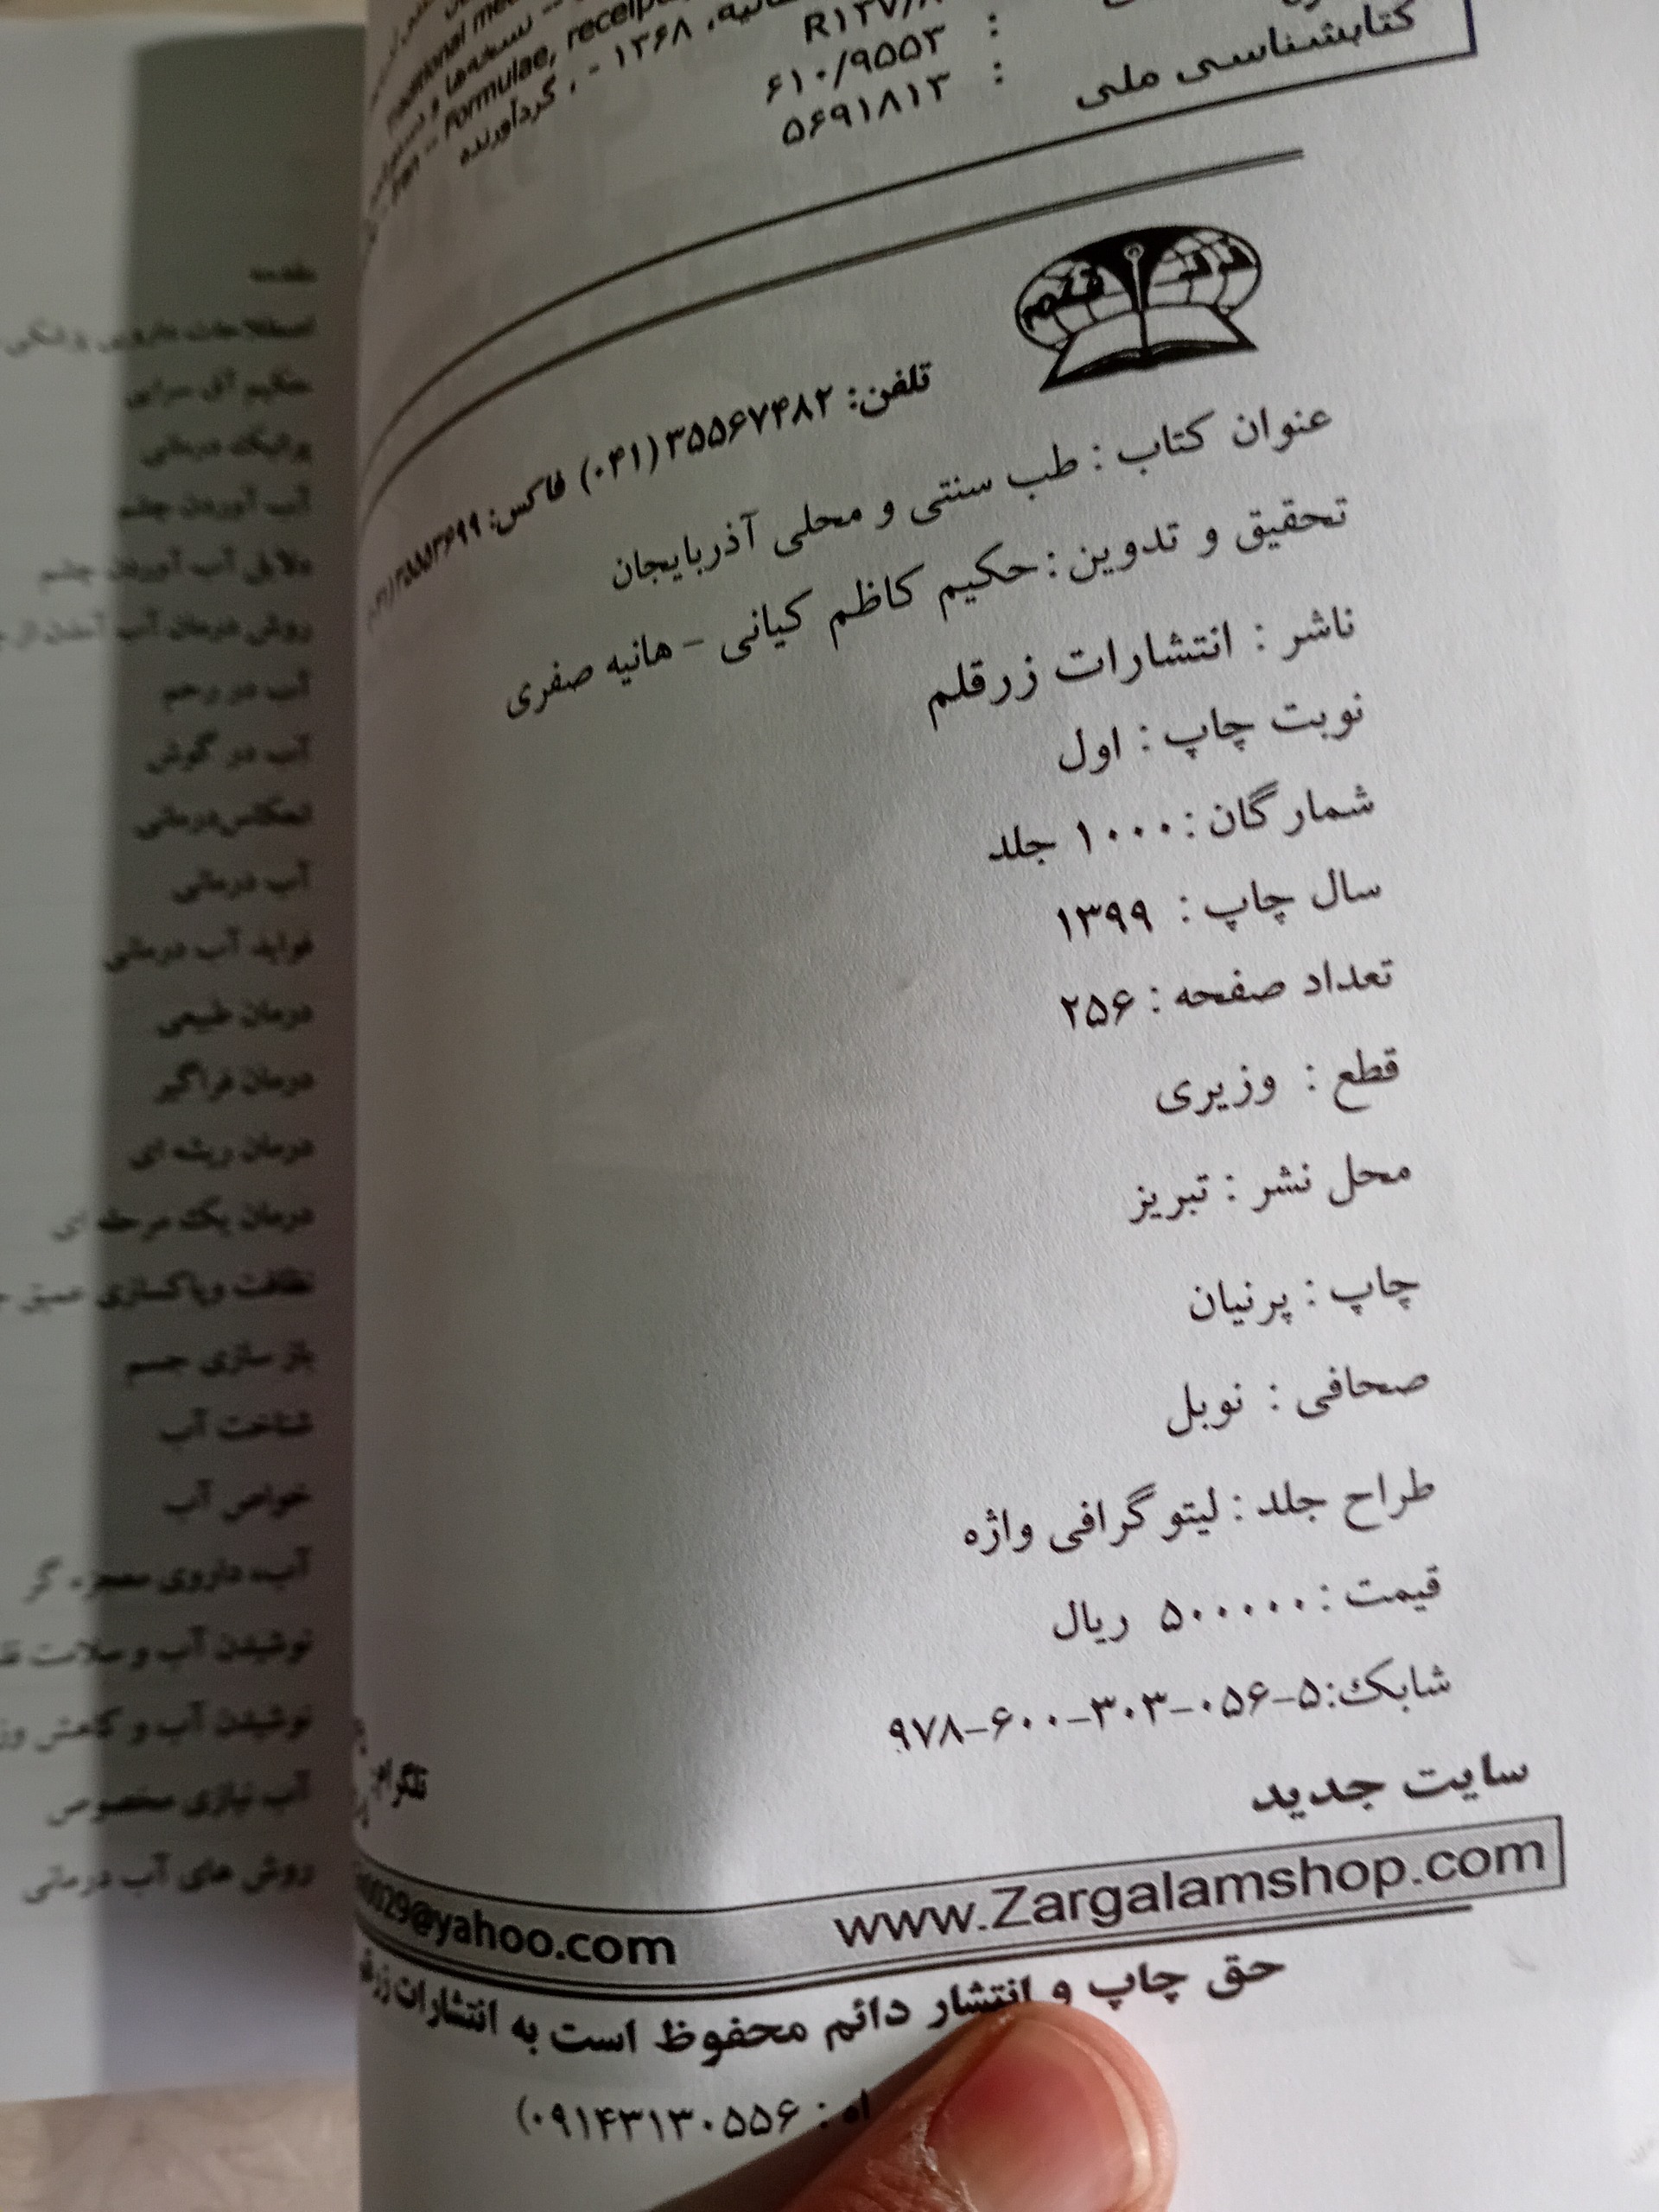 Traditional me
نسخه‌ها و
Formulae, receip
۱۳۶۸ - ، گردآورنده
R۱۲۷/۸
: ۶۱۰/۹۵۵۳
کتابشناسی ملی : ۵۶۹۱۸۱۳
زر قلم
تلفن: ۳۵۵۶۷۴۸۲(۰۴۱) فاکس: ۳۵۵۵۳۶۹۹
عنوان کتاب : طب سنتی و محلی آذربایجان
تحقیق و تدوین : حکیم کاظم کیانی - هانیه صفری
ناشر : انتشارات زرقلم
نوبت چاپ : اول
شمارگان : ۱۰۰۰ جلد
سال چاپ : ۱۳۹۹
تعداد صفحه : ۲۵۶
قطع : وزیری
محل نشر : تبریز
چاپ : پرنیان
صحافی : نوبل
طراح جلد : لیتوگرافی واژه
قیمت : ۵۰۰۰۰۰ ریال
شابک: ۵-۰۵۶-۳۰۳-۶۰۰-۹۷۸
سایت جدید
تلگرام:
www.Zargalamshop.com
0029@yahoo.com
حق چاپ و انتشار دائم محفوظ است به انتشارات
اه : ۰۹۱۴۳۱۳۰۵۵۶)
مقدمه
اصطلاحات دارویی پزشکی
حکیم آق سرایی
پزشک درمانی
آب آوردن چشم
دلایل آب آوردن چشم
روش درمان آب آمدن از
آب در رحم
آب در گوش
آب درمانی
فواید آب درمانی
درمان طبیعی
درمان فراگیر
درمان ریشه ای
درمان یک مرحله ای
نظافت وپاکسازی عمیق
باز سازی جسم
شناخت آب
خواص آب
آب، داروی معجزه گر
نوشیدن آب و سلامت
نوشیدن آب و کاهش
آب نیازی مخصوص
روش های آب درمانی